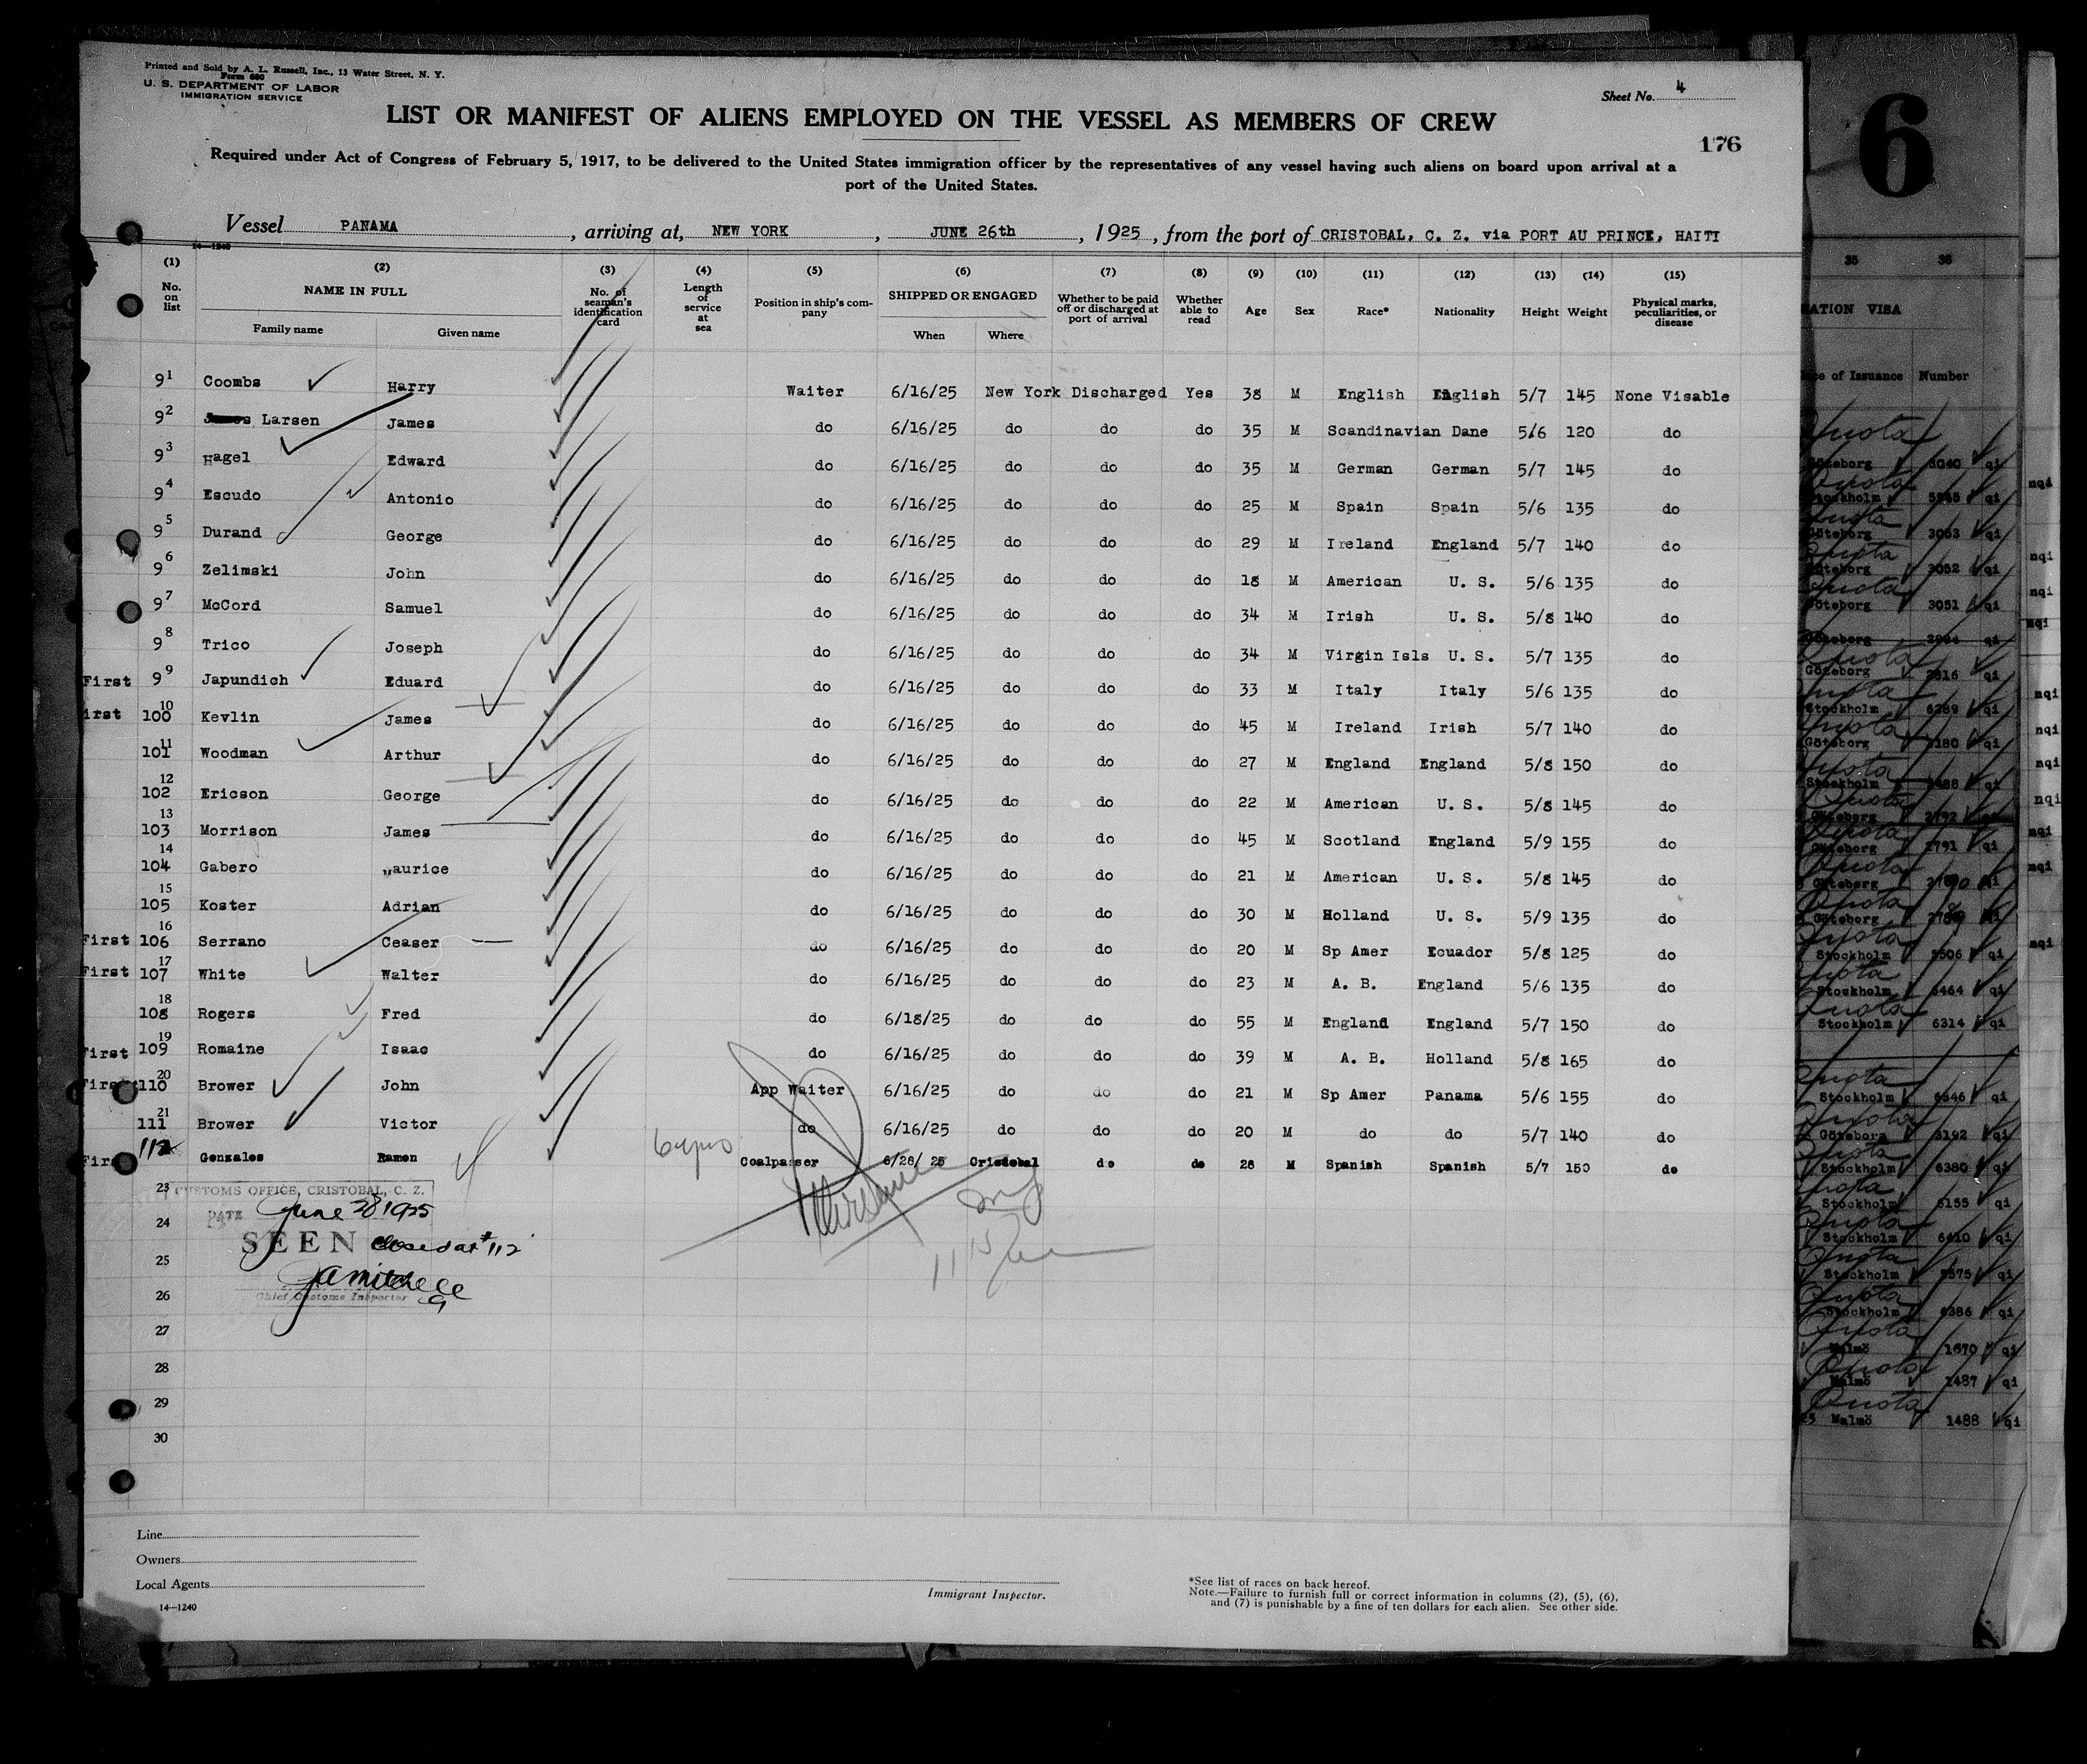 Printed and Sold by A. L. Russell, Inc., 13 Water Street, N. Y.
Form 680
U. S. DEPARTMENT OF LABOR
IMMIGRATION SERVICE
Sheet No. 4
LIST OR MANIFEST OF ALIENS EMPLOYED ON THE VESSEL AS MEMBERS OF CREW
176
Required under Act of Congress of February 5, 1917, to be delivered to the United States immigration officer by the representatives of any vessel having such aliens on board upon arrival at a
port of the United States.
Vessel PANAMA, arriving at, NEW YORK, JUNE 26th, 1925, from the port of CRISTOBAL, C. Z. via PORT AU PRINCE, HAITI
14—1240
(1) (2) (3) (4) (5) (6) (7) (8) (9) (10) (11) (12) (13) (14) (15)
No. on list NAME IN FULL Family name Given name No. of seaman's identification card Length of service at sea Position in ship's company SHIPPED OR ENGAGED When Where Whether to be paid off or discharged at port of arrival Whether able to read Age Sex Race* Nationality Height Weight Physical marks, peculiarities, or disease
91 Coombs Harry Waiter 6/16/25 New York Discharged Yes 38 M English English 5/7 145 None Visable
92 Larsen James do 6/16/25 do do do 35 M Scandinavian Dane 5/6 120 do
93 Hagel Edward do 6/16/25 do do do 35 M German German 5/7 145 do
94 Escudo Antonio do 6/16/25 do do do 25 M Spain Spain 5/6 135 do
95 Durand George do 6/16/25 do do do 29 M Ireland England 5/7 140 do
96 Zelimski John do 6/16/25 do do do 18 M American U. S. 5/6 135 do
97 McCord Samuel do 6/16/25 do do do 34 M Irish U. S. 5/8 140 do
98 Trico Joseph do 6/16/25 do do do 34 M Virgin Isls U. S. 5/7 135 do
First 99 Japundich Eduard do 6/16/25 do do do 33 M Italy Italy 5/6 135 do
irst 10 100 Kevlin James do 6/16/25 do do do 45 M Ireland Irish 5/7 140 do
11 101 Woodman Arthur do 6/16/25 do do do 27 M England England 5/8 150 do
12 102 Ericson George do 6/16/25 do do do 22 M American U. S. 5/8 145 do
13 103 Morrison James do 6/16/25 do do do 45 M Scotland England 5/9 155 do
14 104 Gabero Maurice do 6/16/25 do do do 21 M American U. S. 5/8 145 do
15 105 Koster Adrian do 6/16/25 do do do 30 M Holland U. S. 5/9 135 do
First 16 106 Serrano Ceaser do 6/16/25 do do do 20 M Sp Amer Ecuador 5/8 125 do
First 17 107 White Walter do 6/16/25 do do do 23 M A. B. England 5/6 135 do
18 108 Rogers Fred do 6/18/25 do do do 55 M England England 5/7 150 do
First 19 109 Romaine Isaac do 6/16/25 do do do 39 M A. B. Holland 5/8 165 do
First 20 110 Brower John App Waiter 6/16/25 do do do 21 M Sp Amer Panama 5/6 155 do
21 111 Brower Victor do 6/16/25 do do do 20 M do do 5/7 140 do
Firs 112 Gonzales Ramon Coalpasser 6/28/25 Cristobal do do 28 M Spanish Spanish 5/7 150 do
23
CUSTOMS OFFICE, CRISTOBAL, C. Z.
DATE June 28 1925
24
SEEN Closed at #112
25
26
Chief Customs Inspector
27
28
29
30
Line
Owners
Local Agents
14—1240
Immigrant Inspector.
*See list of races on back hereof.
Note.—Failure to furnish full or correct information in columns (2), (5), (6),
and (7) is punishable by a fine of ten dollars for each alien. See other side.
6
35 36
ATION VISA
ce of Issuance Number
Quota
Göteborg 3040 qi
Stockholm qi
Göteborg 3053 qi
Göteborg 3052 qi
Göteborg 3051 qi
Göteborg qi
Göteborg qi
Stockholm 6289 qi
Göteborg qi
Stockholm qi
Göteborg 2792 qi
Göteborg 2791 qi
Göteborg qi
Göteborg
Stockholm 5506 qi
Stockholm 6464 qi
Stockholm 6314 qi
Stockholm 6346 qi
Göteborg 3192 qi
Stockholm 6380 qi
Stockholm 6155 qi
Stockholm 6410 qi
Stockholm qi
Stockholm 6386 qi
Malmö 1670 qi
Malmö 1487 qi
Malmö 1488 qi
nqi
nqi
nqi
nqi
nqi
nqi
nqi
nqi
nqi
nqi
nqi